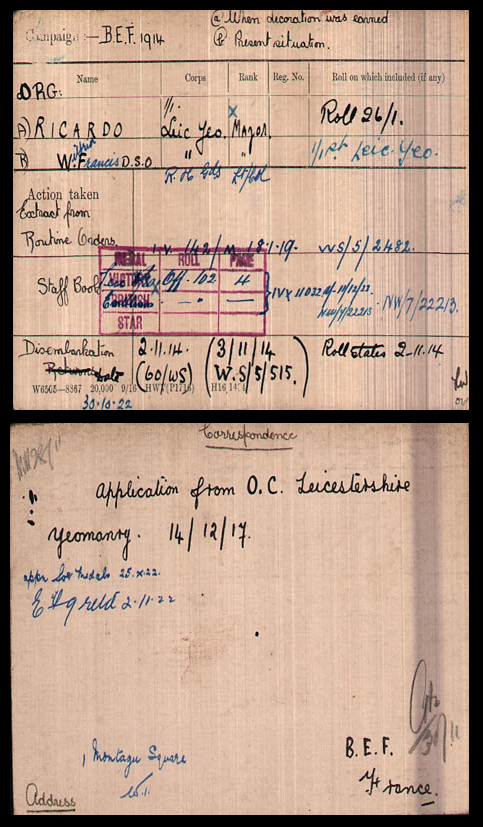 (a) When decoration was earned
Campaign :— B.E.F. 1914
(b) Present situation.
Name Corps Rank Reg. No. Roll on which included (if any)
ORG:
A) RICARDO 1/1. Leic Yeo. x Major. Roll 26/1.
B) W. Francis D.S.O " " 1/1st Leic. Yeo.
R. H Gds Lt/Col
Action taken
Extract from
Routine Orders 18.1.19. W5/5/2482.
MEDAL ROLL PAGE
Staff Book VICTORY Off. 102 4
BRITISH — • — IV x 11032 NW/7/22213.
STAR
Disembarkation 2.11.14. (3/11/14 Roll states 2-11.14
Date (60/W5) W.5/5/515.)
W6505—8367 20,000 9/16 HWV(P1716) H16/144
30.10.22
Correspondence
Application from O.C. Leicestershire
Yeomanry. 14/12/17.
appn for medals 25.X.22.
2.11.22
1 Montagu Square
W.1.
B.E.F.
France.
Address